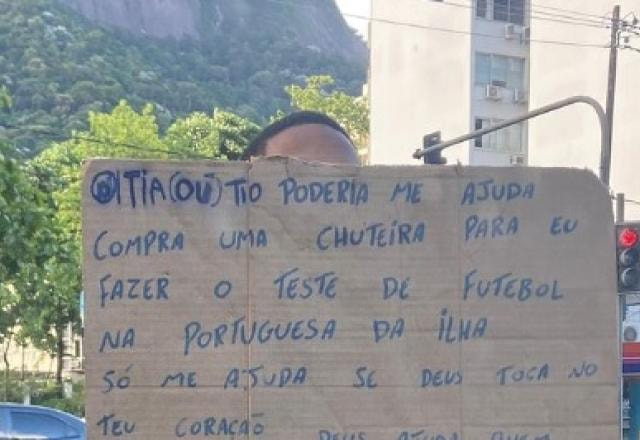 OI TIA (OU) TIO PODERIA ME AJUDA
COMPRA UMA CHUTEIRA PARA EU
FAZER O TESTE DE FUTEBOL
NA PORTUGUESA DA ILHA
SÓ ME AJUDA SE DEUS TOCA NO
TEU CORAÇÃO DEUS AJUDA QUEM